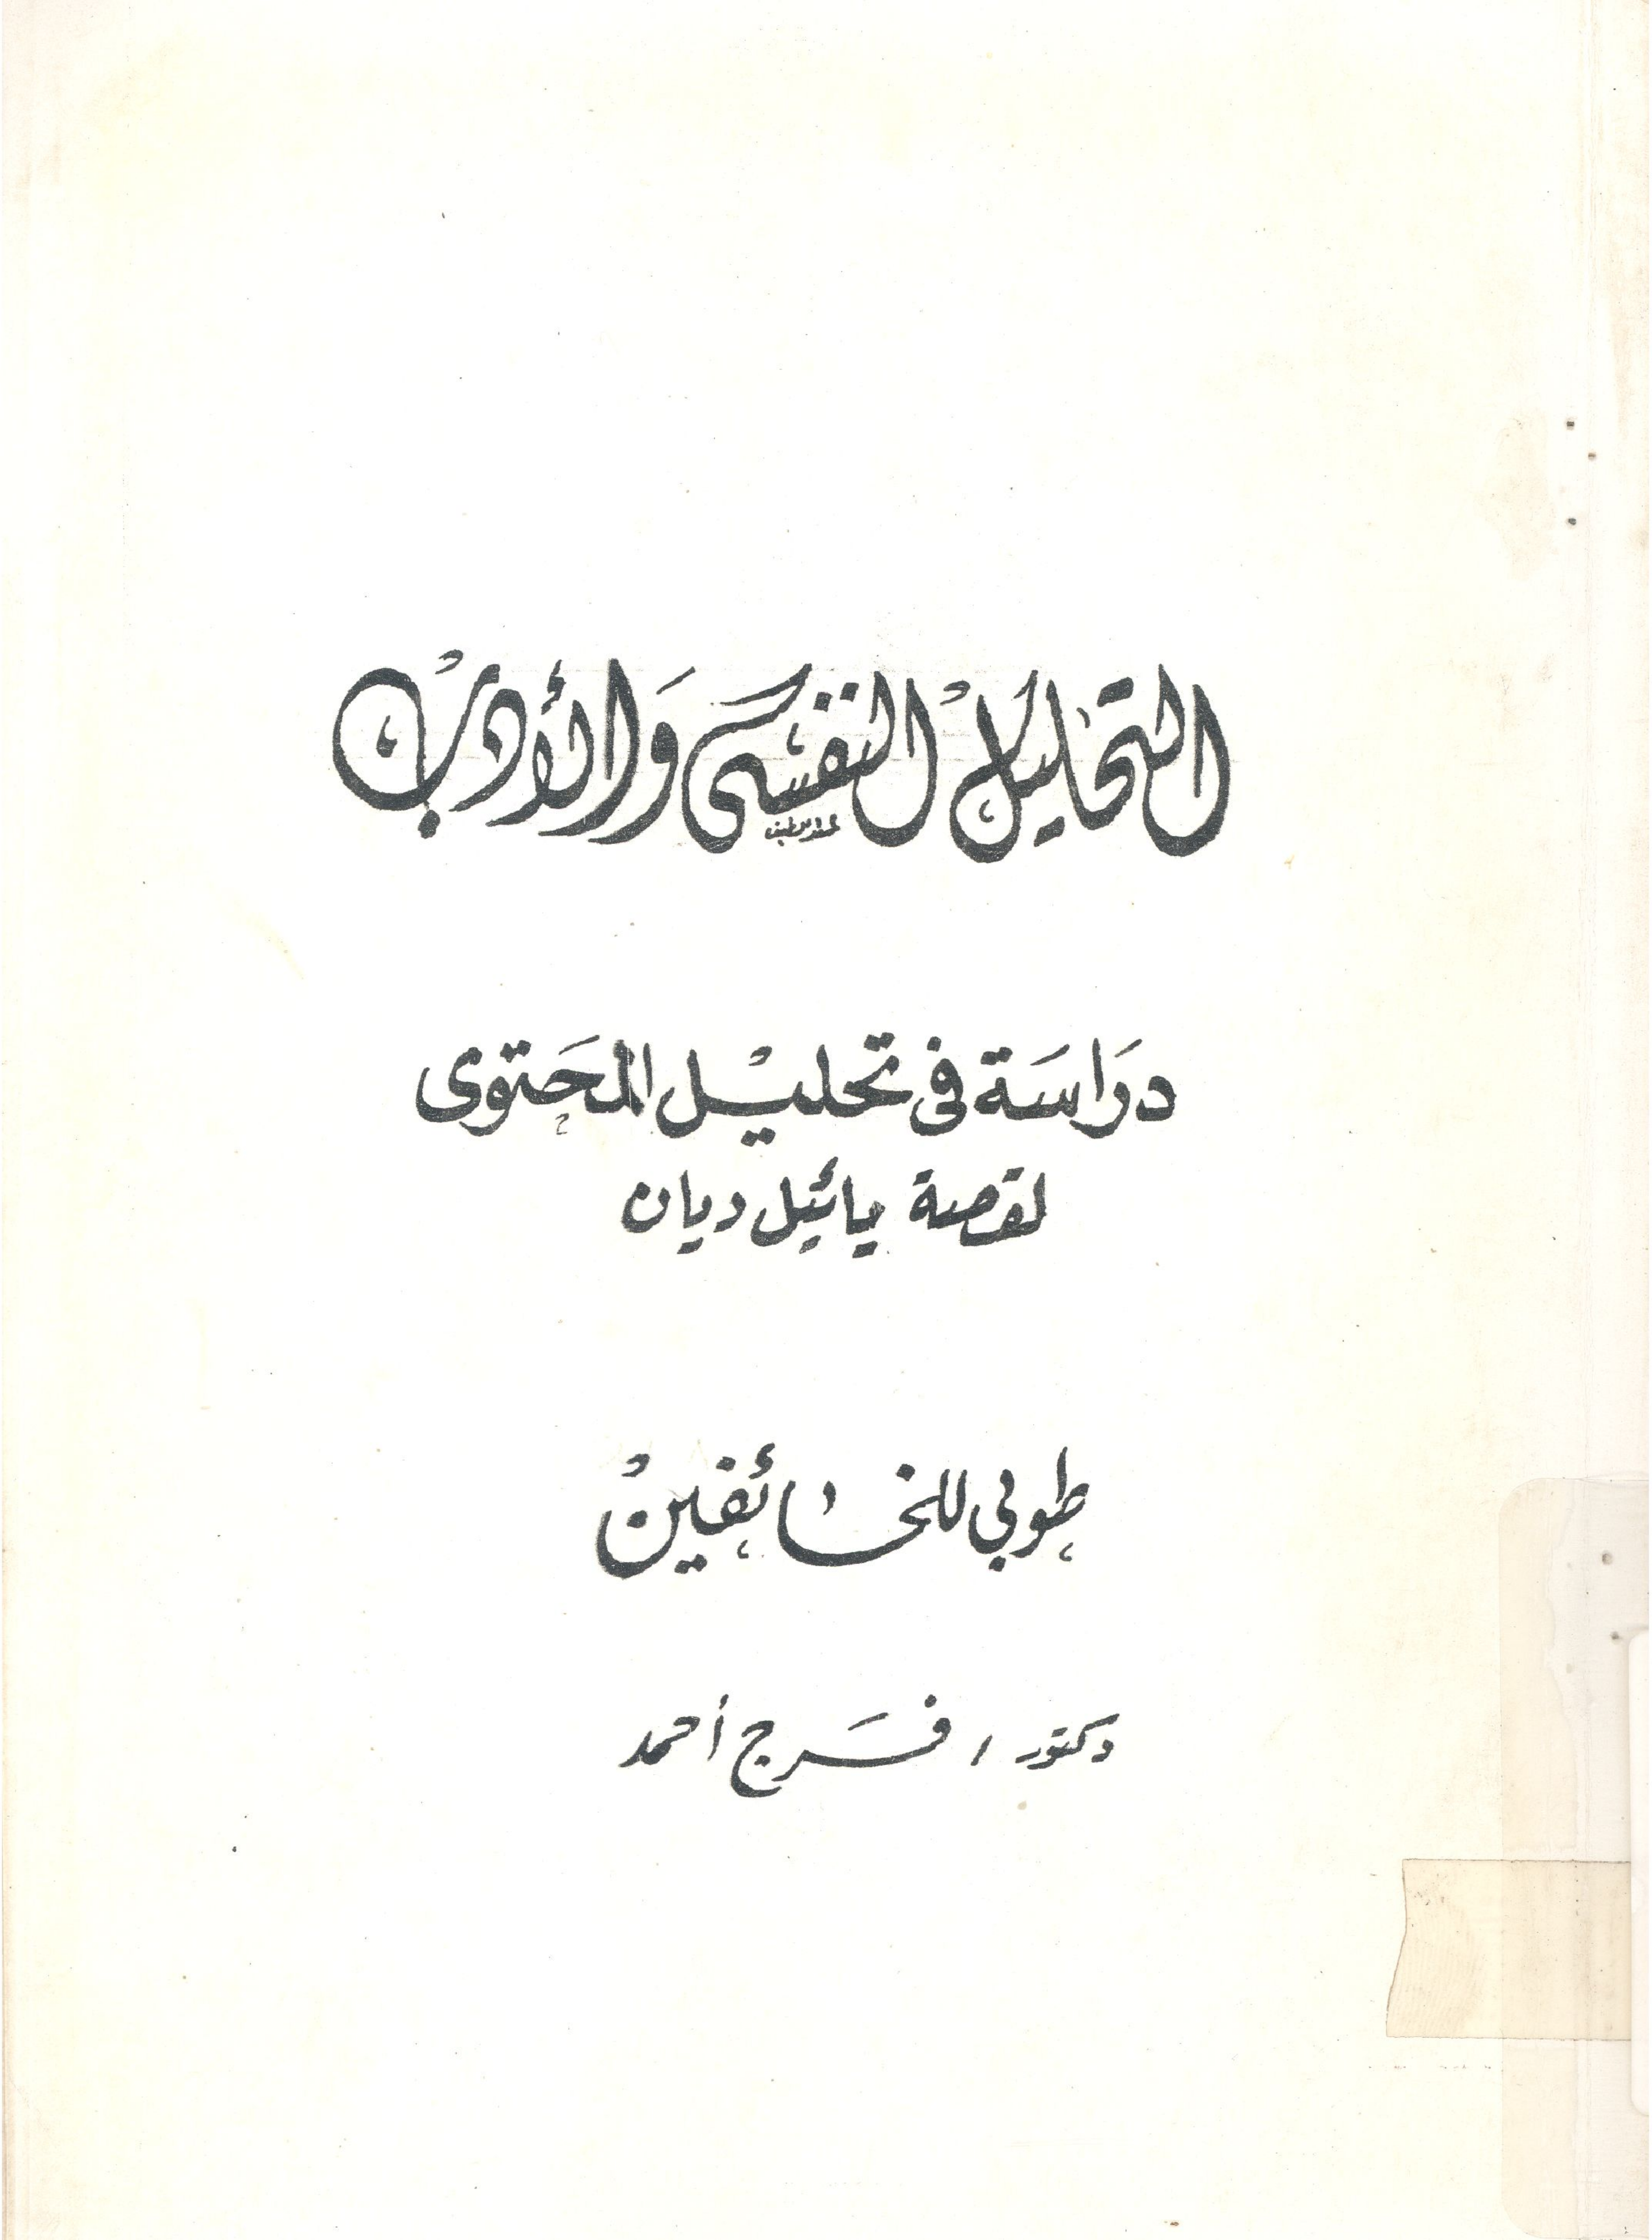 التحليل النفسى والأدب
دراسة فى تحليل المحتوى
لقصة يائيل ديان
طوبى للخائفين
دكتور / فرج أحمد